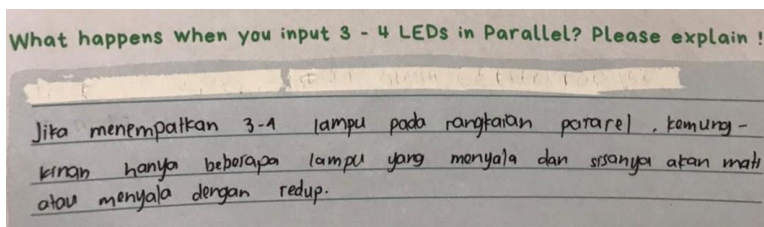 What happens when you input 3 - 4 LEDs in Parallel? Please explain !
Jika menempatkan 3-4 lampu pada rangkaian pararel, kemung-
kinan hanya beberapa lampu yang menyala dan sisanya akan mati
atau menyala dengan redup.